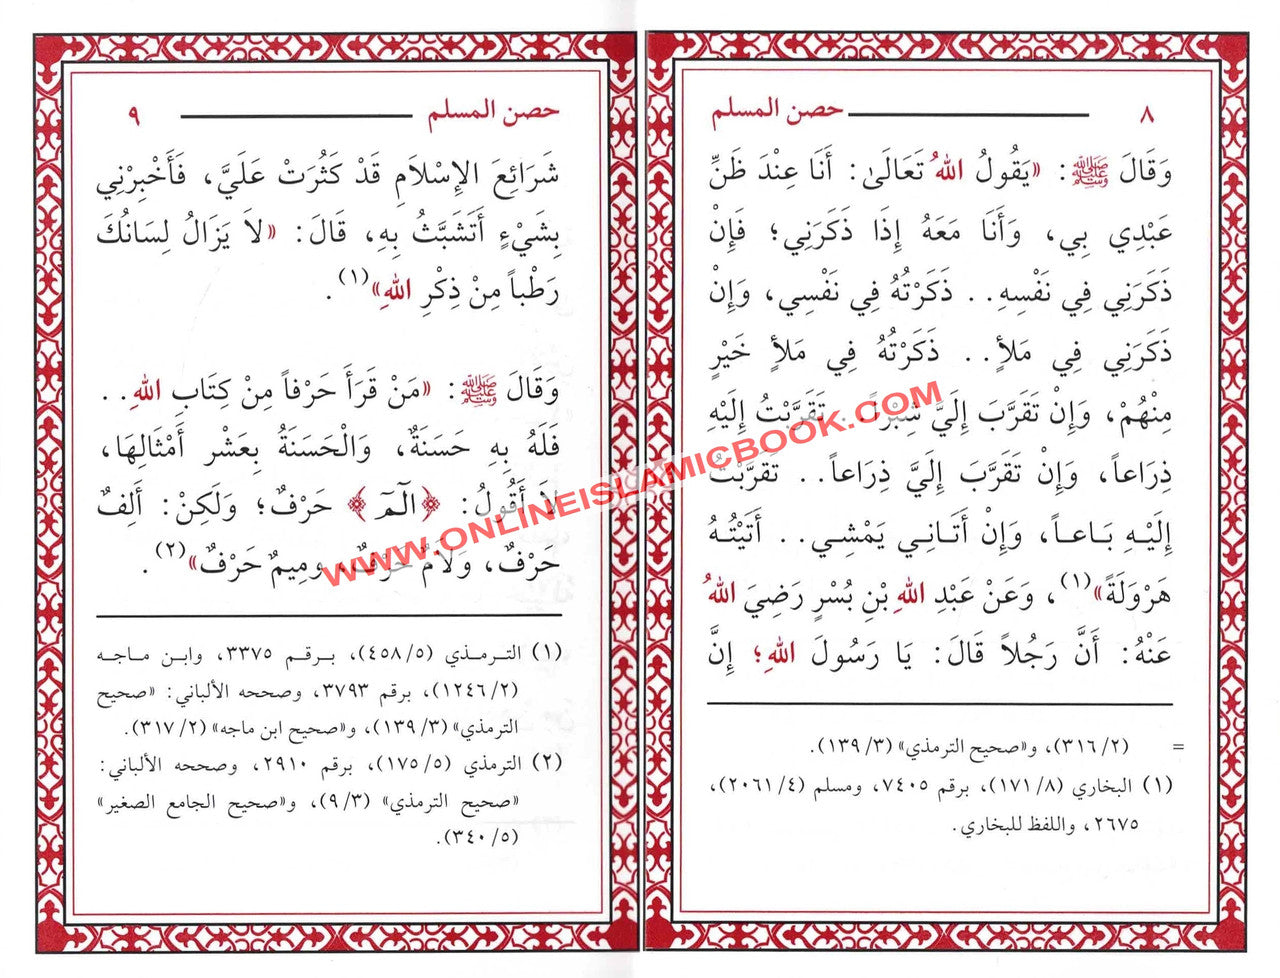 ٨ حصن المسلم
وَقَالَ ﷺ: «يَقُولُ اللهُ تَعَالَىٰ: أَنَا عِنْدَ ظَنِّ
عَبْدِي بِي، وَأَنَا مَعَهُ إِذَا ذَكَرَنِي؛ فَإِنْ
ذَكَرَنِي فِي نَفْسِهِ.. ذَكَرْتُهُ فِي نَفْسِي، وَإِنْ
ذَكَرَنِي فِي مَلأٍ.. ذَكَرْتُهُ فِي مَلأٍ خَيْرٍ
مِنْهُمْ، وَإِنْ تَقَرَّبَ إِلَيَّ شِبْراً.. تَقَرَّبْتُ إِلَيْهِ
ذِرَاعاً، وَإِنْ تَقَرَّبَ إِلَيَّ ذِرَاعاً.. تَقَرَّبْتُ
إِلَيْهِ بَاعاً، وَإِنْ أَتَانِي يَمْشِي.. أَتَيْتُهُ
هَرْوَلَةً»(١)، وَعَنْ عَبْدِ اللهِ بْنِ بُسْرٍ رَضِيَ اللهُ
عَنْهُ: أَنَّ رَجُلاً قَالَ: يَا رَسُولَ اللهِ؛ إِنَّ
= (٣١٦/٢)، و«صحيح الترمذي» (١٣٩/٣).
(١) البخاري (١٧١/٨)، برقم ٧٤٠٥، ومسلم (٢٠٦١/٤)،
٢٦٧٥، واللفظ للبخاري.
حصن المسلم ٩
شَرَائِعَ الإِسْلَامِ قَدْ كَثُرَتْ عَلَيَّ، فَأَخْبِرْنِي
بِشَيْءٍ أَتَشَبَّثُ بِهِ، قَالَ: «لَا يَزَالُ لِسَانُكَ
رَطْباً مِنْ ذِكْرِ اللهِ»(١).
وَقَالَ ﷺ: «مَنْ قَرَأَ حَرْفاً مِنْ كِتَابِ اللهِ..
فَلَهُ بِهِ حَسَنَةٌ، وَالْحَسَنَةُ بِعَشْرِ أَمْثَالِهَا،
لَا أَقُولُ: ﴿الٓمٓ﴾ حَرْفٌ؛ وَلَكِنْ: أَلِفٌ
حَرْفٌ، وَلَامٌ حَرْفٌ، وَمِيمٌ حَرْفٌ»(٢).
(١) الترمذي (٤٥٨/٥)، برقم ٣٣٧٥، وابن ماجه
(١٢٤٦/٢)، برقم ٣٧٩٣، وصححه الألباني: «صحيح
الترمذي» (١٣٩/٣)، و«صحيح ابن ماجه» (٣١٧/٢).
(٢) الترمذي (١٧٥/٥)، برقم ٢٩١٠، وصححه الألباني:
«صحيح الترمذي» (٩/٣)، و«صحيح الجامع الصغير»
(٣٤٠/٥).
WWW.ONLINEISLAMICBOOK.COM